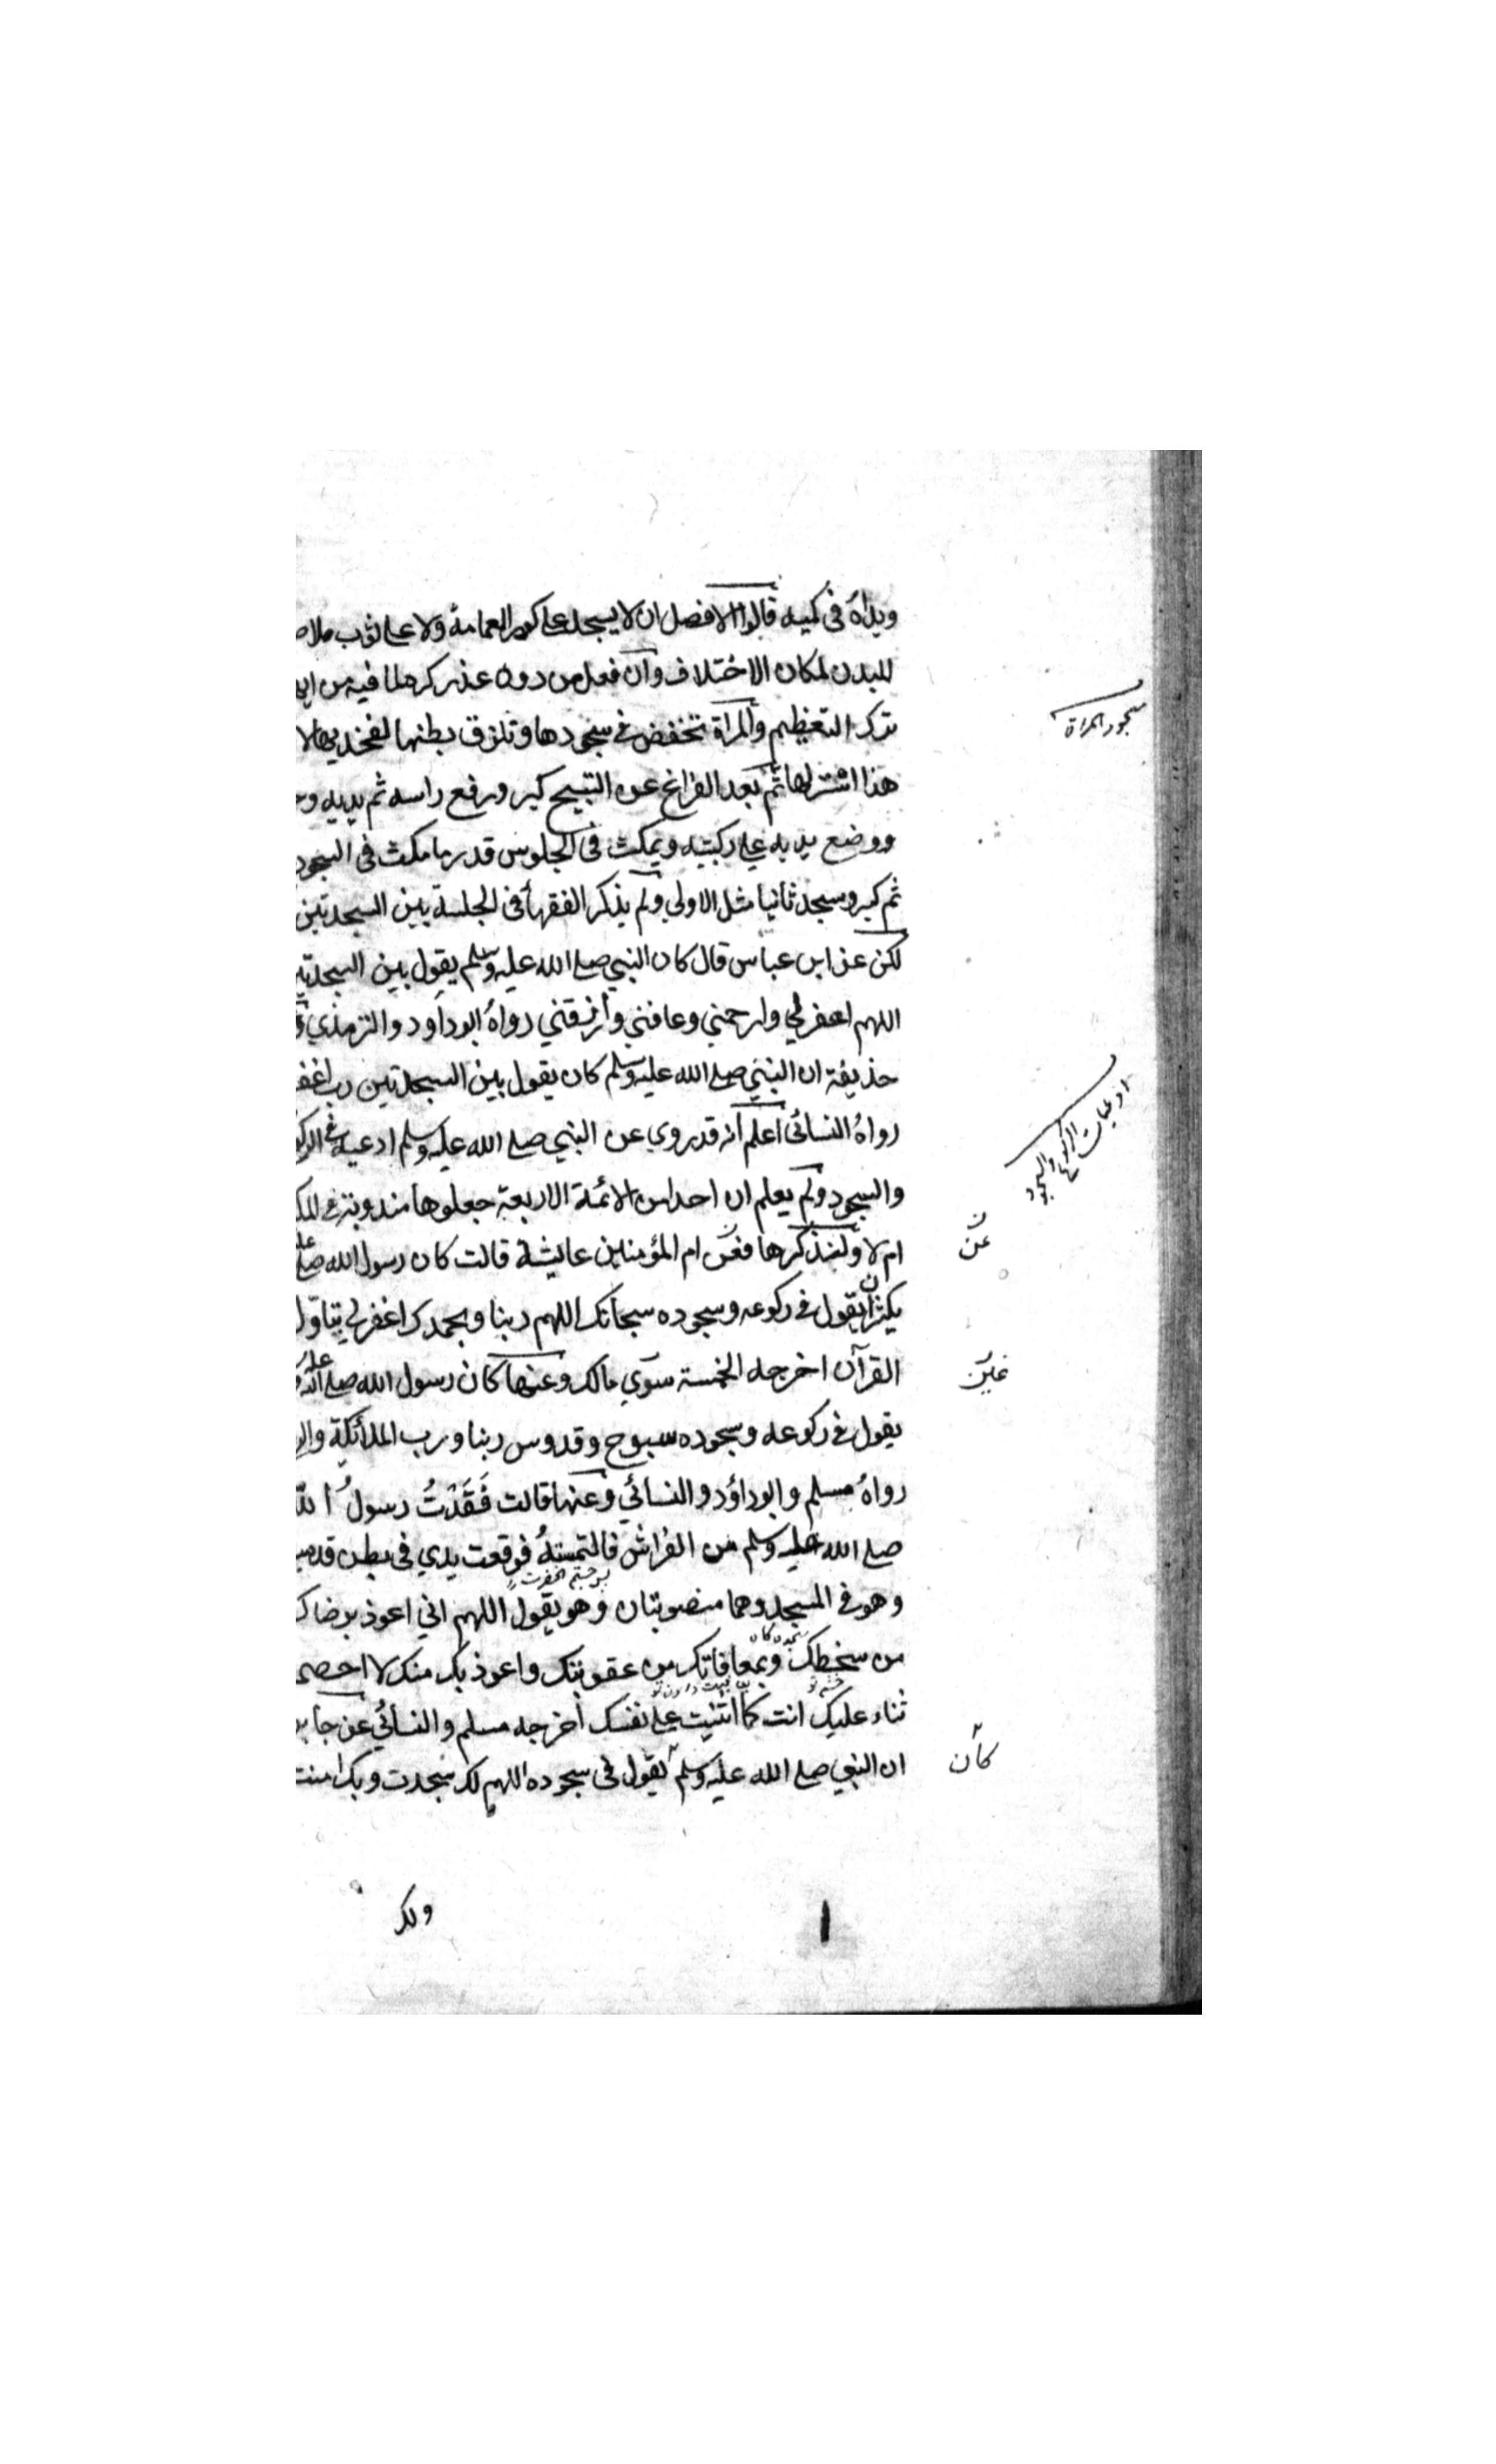 ويداه في كميه قالوا الافضل ان لا يسجد على كور العمامة ولا على ثوب ملا
للبدن لمكان الاختلاف وان فعل من دون عذر كره لما فيه من
ترك التعظيم والمراة تنخفض في سجودها وتلزق بطنها لفخذيها لا
سجود المراة
هذا استر لها ثم بعد الفراغ عن التسبيح كبر ورفع راسه ثم يديه و
ووضع يديه على ركبتيه ويمكث في الجلوس قدر ما مكث في السجود
ثم كبر وسجد ثانيا مثل الاولى ولم يذكر الفقهأ في الجلسة بين السجدتين
لكن عن ابن عباس قال كان النبي صلى الله عليه وسلم يقول بين السجدتين
اللهم اغفر لي وارحمني وعافني وارزقني رواه ابو داود والترمذي و
حذيفة ان النبي صلى الله عليه وسلم كان يقول بين السجدتين رب اغفر
رواه النسائى اعلم انه قد روي عن النبي صلى الله عليه وسلم ادعية في الركو
ادعيات الركوع والسجود
والسجود ولم يعلم ان احدا من الائمة الاربعة جعلوها مندوبة في المك
ام لا ولنذكرها فعن ام المؤمنين عايشة قالت كان رسول الله صلى عليه
عن
يكثر ان يقول في ركوعه وسجوده سبحانك اللهم ربنا وبحمدك اغفر لي يتاول
القرآن اخرجه الخمسة سوى مالك وعنها كان رسول الله صلى الله عليه
يقول في ركوعه وسجوده سبوح وقدوس ربنا ورب الملائكة والر
رواه مسلم وابو داؤد والنسائي وعنها قالت فَقَدْتُ رسولُ الله
صلى الله عليه وسلم من الفراش فالتمسته فوقعت يدي في بطن قدميه
وهو في المسجد وهما منصوبتان وهو يقول اللهم اني اعوذ برضاك
من سخطك وبمعافاتك من عقوبتك واعوذ بك منك لا احصى
ثناء عليك انت كما اثنيت على نفسك اخرجه مسلم والنسائي عن جابر
ان النبي صلى الله عليه وسلم يقول في سجوده اللهم لك سجدت وبك امنت
كان
ولك